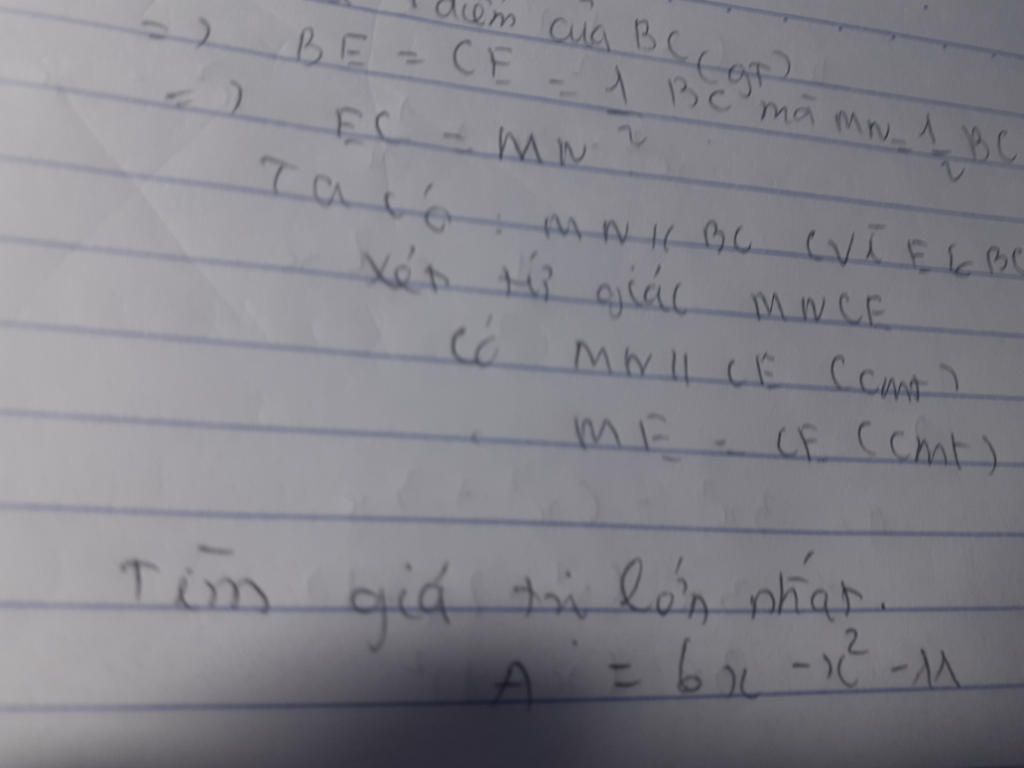 điểm của BC (gt)
=> BE = CE = 1/2 BC mà MN = 1/2 BC
=> EC = MN
Ta có : MN // BC (vì E ∈ BC
Xét tứ giác MNCE
Có MN // CE (cmt)
ME = CE (cmt)
Tìm giá trị lớn nhất.
A = 6x - x² - 11